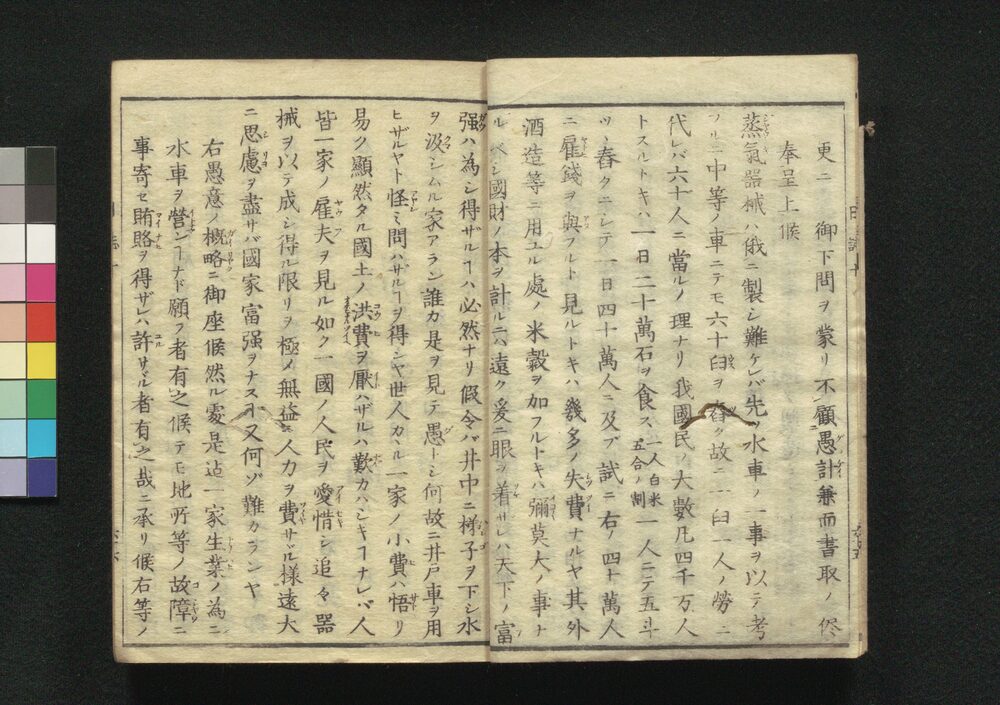 更ニ　御下問ヲ蒙リ不顧愚計兼而書取ノ侭
奉呈上候
蒸氣器械ハ俄ニ製シ難ケレバ先ツ水車ノ一事ヲ以テ考
フルニ中等ノ車ニテモ六十臼ヲ舂ク故ニ一臼一人ノ勞ニ
代レバ六十人ニ當ルノ理ナリ我國民ノ大數凡四千万人
トスルトキハ一日二十萬石ヲ食ス一人白米五合ノ割一人ニテ五斗
ツヽ舂クニシテ一日四十萬人ニ及ブ試ニ右ノ四十萬人
ニ雇錢ヲ與フルト見ルトキハ幾多ノ失費ナルヤ其外
酒造等ニ用ユル處ノ米穀ヲ加フルトキハ彌莫大ノ事ナ
ルベシ國財ノ本ヲ計ルニハ遠ク爰ニ眼ヲ着サレハ天下ノ富
强ハ為シ得ザルヿハ必然ナリ假令バ井中ニ梯子ヲ下シ水
ヲ汲シムル家アラン誰カ是ヲ見テ愚トシ何故ニ井戸車ヲ用
ヒザルヤト怪ミ問ハサルヿヲ得ンヤ世人カハル一家ノ小費ハ悟リ
易ク顯然タル國土ノ洪費ヲ厭ハザルハ歎カハシキヿナレバ人
皆一家ノ雇夫ヲ見ル如ク一國ノ人民ヲ愛惜シ追々器
械ヲ以テ成シ得ル限リヲ極メ無益ニ人力ヲ費サヾル様遠大
ニ思慮ヲ盡サバ國家富强ヲナス又何ゾ難カランヤ
右愚意ノ概略ニ御座候然ル處是迠一家生業ノ為ニ
水車ヲ營ンヿナド願フ者有之候テモ地所等ノ故障ニ
事寄セ賄賂ヲ得ザレハ許サヾル者有之哉ニ承リ候右等ノ